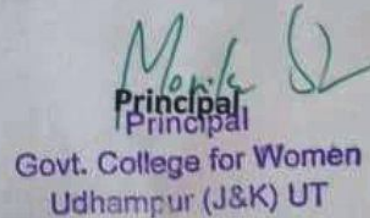 Principal
Principal
Govt. College for Women
Udhampur (J&K) UT